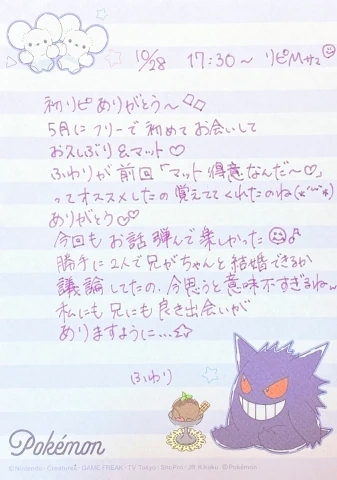 10/28 17:30〜 リピMサマ
初リピありがとう〜
5月にフリーで初めてお会いして
お久しぶり&マット♡
ふわりが前回「マット得意なんだ〜♡」
ってオススメしたの覚えててくれたのね(*´˘`*)
ありがとう♡
今回もお話弾んで楽しかった♪
勝手に2人で兄がちゃんと結婚できるか
議論してたの、今思うと意味不すぎるねw
私にも兄にも良き出会いが
ありますように…☆
ふわり
Pokémon
©Nintendo・Creatures・GAME FREAK・TV Tokyo・ShoPro・JR Kikaku ©Pokémon